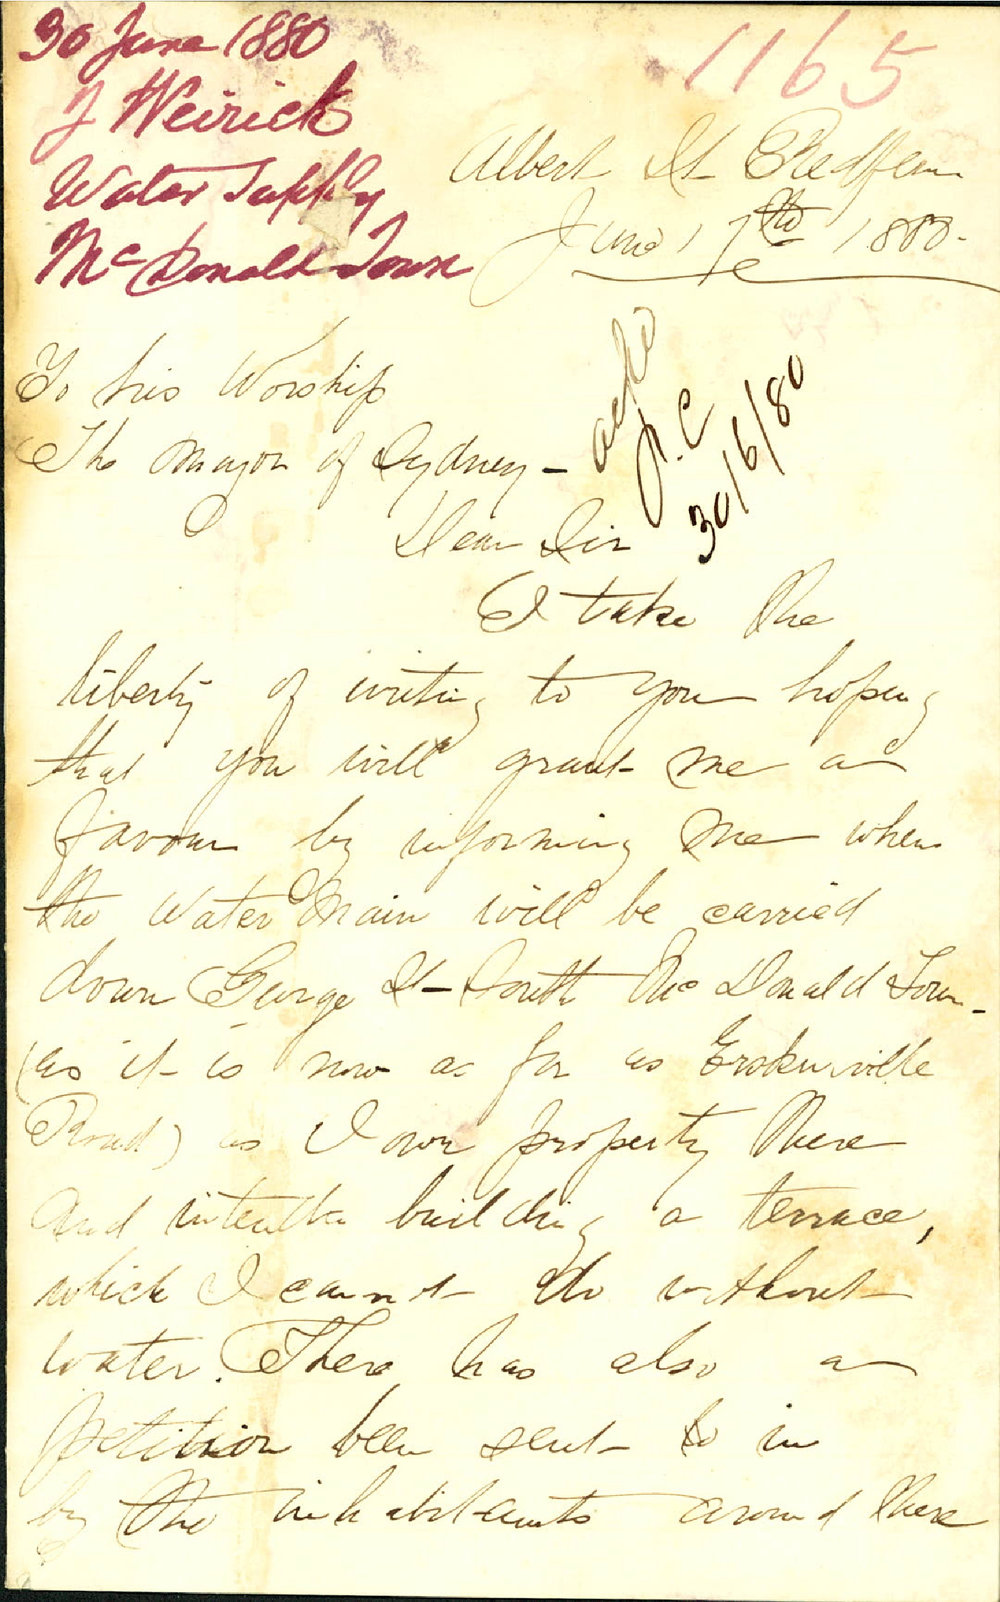 30 June 1880
J Weirick
Water Supply
McDonald Town
1165
Albert St Redfern
June 17th 1880.
ackd
30/6/80
To his Worship
The Mayor of Sydney -
Dear Sir
I take the
liberty of writing to you hoping
that you will grant me a
favour by informing me when
the Water Main will be carried
down George St South McDonald Town -
(as it is now as far as Erskinville
Road) as I own property there
and building a terrace,
which I cannot do without
water. There has also a
petition been sent to in
by the inhabitants around there